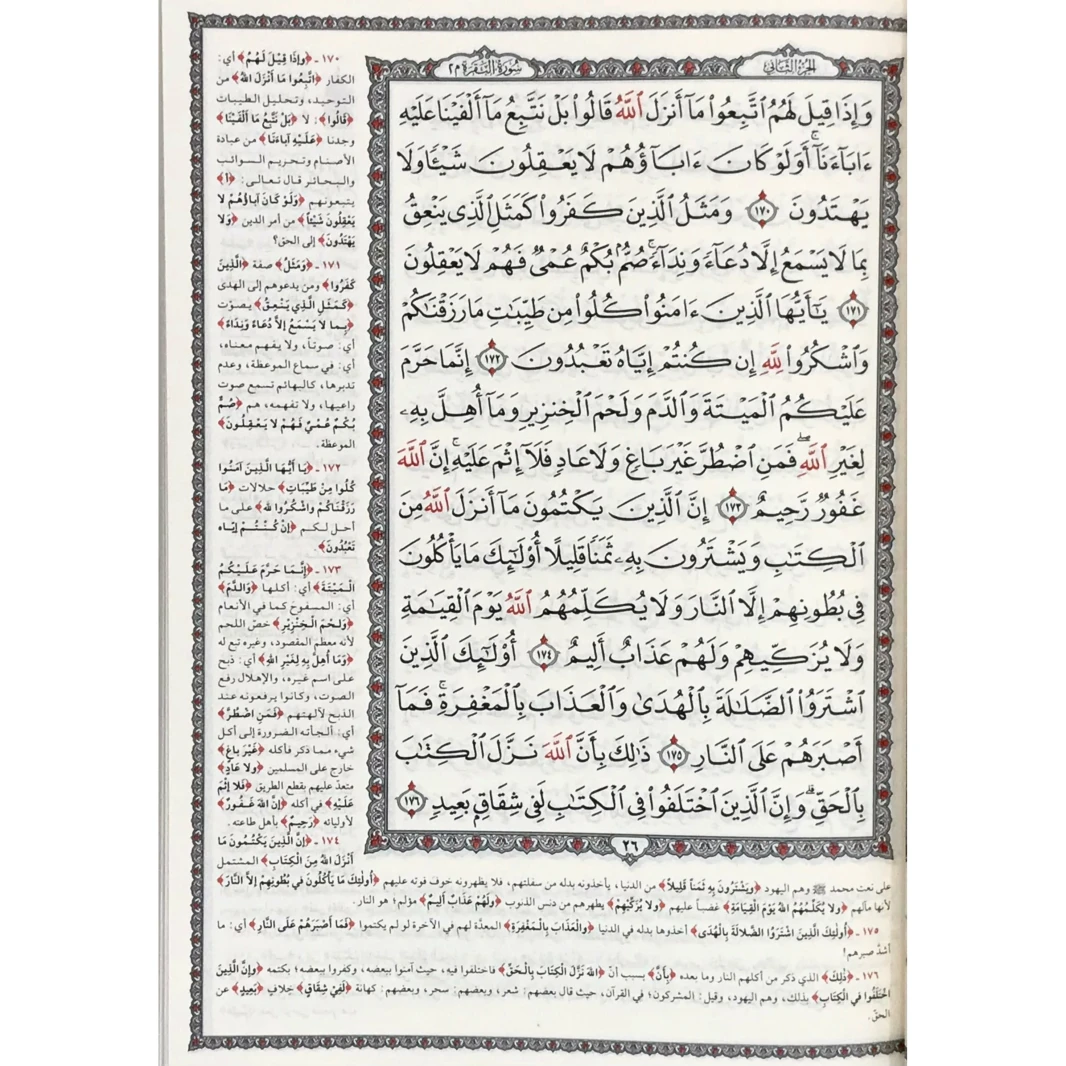 الجزء الثاني
سورة البقرة ٢
وَإِذَا قِيلَ لَهُمُ ٱتَّبِعُوا۟ مَآ أَنزَلَ ٱللَّهُ قَالُوا۟ بَلْ نَتَّبِعُ مَآ أَلْفَيْنَا عَلَيْهِ
ءَابَآءَنَآ ۗ أَوَلَوْ كَانَ ءَابَآؤُهُمْ لَا يَعْقِلُونَ شَيْـًٔا وَلَا
يَهْتَدُونَ ١٧٠ وَمَثَلُ ٱلَّذِينَ كَفَرُوا۟ كَمَثَلِ ٱلَّذِى يَنْعِقُ
بِمَا لَا يَسْمَعُ إِلَّا دُعَآءً وَنِدَآءً ۚ صُمٌّۢ بُكْمٌ عُمْىٌ فَهُمْ لَا يَعْقِلُونَ
١٧١ يَـٰٓأَيُّهَا ٱلَّذِينَ ءَامَنُوا۟ كُلُوا۟ مِن طَيِّبَـٰتِ مَا رَزَقْنَـٰكُمْ
وَٱشْكُرُوا۟ لِلَّهِ إِن كُنتُمْ إِيَّاهُ تَعْبُدُونَ ١٧٢ إِنَّمَا حَرَّمَ
عَلَيْكُمُ ٱلْمَيْتَةَ وَٱلدَّمَ وَلَحْمَ ٱلْخِنزِيرِ وَمَآ أُهِلَّ بِهِۦ
لِغَيْرِ ٱللَّهِ ۖ فَمَنِ ٱضْطُرَّ غَيْرَ بَاغٍ وَلَا عَادٍ فَلَآ إِثْمَ عَلَيْهِ ۚ إِنَّ ٱللَّهَ
غَفُورٌ رَّحِيمٌ ١٧٣ إِنَّ ٱلَّذِينَ يَكْتُمُونَ مَآ أَنزَلَ ٱللَّهُ مِنَ
ٱلْكِتَـٰبِ وَيَشْتَرُونَ بِهِۦ ثَمَنًا قَلِيلًا ۙ أُو۟لَـٰٓئِكَ مَا يَأْكُلُونَ
فِى بُطُونِهِمْ إِلَّا ٱلنَّارَ وَلَا يُكَلِّمُهُمُ ٱللَّهُ يَوْمَ ٱلْقِيَـٰمَةِ
وَلَا يُزَكِّيهِمْ وَلَهُمْ عَذَابٌ أَلِيمٌ ١٧٤ أُو۟لَـٰٓئِكَ ٱلَّذِينَ
ٱشْتَرَوُا۟ ٱلضَّلَـٰلَةَ بِٱلْهُدَىٰ وَٱلْعَذَابَ بِٱلْمَغْفِرَةِ ۚ فَمَآ
أَصْبَرَهُمْ عَلَى ٱلنَّارِ ١٧٥ ذَٰلِكَ بِأَنَّ ٱللَّهَ نَزَّلَ ٱلْكِتَـٰبَ
بِٱلْحَقِّ ۗ وَإِنَّ ٱلَّذِينَ ٱخْتَلَفُوا۟ فِى ٱلْكِتَـٰبِ لَفِى شِقَاقٍۭ بَعِيدٍ ١٧٦
٢٦
١٧٠ - ﴿وَإِذَا قِيلَ لَهُمُ﴾ أي:
الكفار ﴿اتَّبِعُوا مَا أَنْزَلَ اللهُ﴾ من
التوحيد، وتحليل الطيبات
﴿قَالُوا﴾: لا ﴿بَلْ نَتَّبِعُ مَا أَلْفَيْنَا﴾
وجدنا ﴿عَلَيْهِ آبَاءَنَا﴾ من عبادة
الأصنام وتحريم السوائب
والبحائر قال تعالى: ﴿أَ﴾
يتبعونهم ﴿وَلَوْ كَانَ آبَاؤُهُمْ لا
يَعْقِلُونَ شَيْئاً﴾ من أمر الدين ﴿وَلا
يَهْتَدُونَ﴾ إلى الحق؟
١٧١ - ﴿وَمَثَلُ﴾ صفة ﴿الَّذِينَ
كَفَرُوا﴾ ومن يدعوهم إلى الهدى
﴿كَمَثَلِ الَّذِي يَنْعِقُ﴾ يصوّت
﴿بِمَا لا يَسْمَعُ إِلاَّ دُعَاءً وَنِدَاءً﴾
أي: صوتاً، ولا يفهم معناه،
أي: في سماع الموعظة، وعدم
تدبرها، كالبهائم تسمع صوت
راعيها، ولا تفهمه، هم ﴿صُمٌّ
بُكْمٌ عُمْيٌ فَهُمْ لا يَعْقِلُونَ﴾
الموعظة.
١٧٢ - ﴿يَا أَيُّهَا الَّذِينَ آمَنُوا
كُلُوا مِنْ طَيِّبَاتِ﴾ حلالات ﴿مَا
رَزَقْنَاكُمْ وَاشْكُرُوا لله﴾ على ما
أحل لكم ﴿إِنْ كُنْتُمْ إِيَّاه
تَعْبُدُونَ﴾.
١٧٣ - ﴿إِنَّمَا حَرَّمَ عَلَيْكُمُ
الْمَيْتَةَ﴾ أي: أكلها ﴿وَالدَّمَ﴾
أي: المسفوح كما في الأنعام
﴿وَلَحْمَ الْخِنْزِيرِ﴾ خصّ اللحم
لأنه معظم المقصود، وغيره تبع له
﴿وَمَا أُهِلَّ بِهِ لِغَيْرِ اللهِ﴾ أي: ذبح
على اسم غيره، والإهلال رفع
الصوت، وكانوا يرفعونه عند
الذبح لآلهتهم ﴿فَمَنِ اضْطُرَّ﴾
أي: ألجأته الضرورة إلى أكل
شيء مما ذكر فأكله ﴿غَيْرَ بَاغٍ﴾
خارج على المسلمين ﴿وَلا عَادٍ﴾
متعدّ عليهم بقطع الطريق ﴿فَلا إِثْمَ
عَلَيْهِ﴾ في أكله ﴿إِنَّ اللهَ غَفُورٌ﴾
لأوليائه ﴿رَحِيمٌ﴾ بأهل طاعته.
١٧٤ - ﴿إِنَّ الَّذِينَ يَكْتُمُونَ مَا
أَنْزَلَ اللهُ مِنَ الْكِتَابِ﴾ المشتمل
على نعت محمد ﷺ وهم اليهود ﴿وَيَشْتَرُونَ بِهِ ثَمَناً قَلِيلاً﴾ من الدنيا، يأخذونه بدله من سفلتهم، فلا يظهرونه خوف فوته عليهم ﴿أُولَئِكَ مَا يَأْكُلُونَ في بُطُونِهِمْ إِلاَّ النَّارَ﴾
لأنها مآلهم ﴿وَلا يُكَلِّمُهُمُ اللهُ يَوْمَ الْقِيَامَةِ﴾ غضباً عليهم ﴿وَلا يُزَكِّيهِمْ﴾ يطهرهم من دنس الذنوب ﴿وَلَهُمْ عَذَابٌ أَلِيمٌ﴾ مؤلم؛ هو النار.
١٧٥ - ﴿أُولَئِكَ الَّذِينَ اشْتَرَوُا الضَّلالَةَ بِالْهُدَى﴾ أخذوها بدله في الدنيا ﴿وَالْعَذَابَ بِالْمَغْفِرَةِ﴾ المعدَّة لهم في الآخرة لو لم يكتموا ﴿فَمَا أَصْبَرَهُمْ عَلَى النَّارِ﴾ أي: ما
أشدّ صبرهم!
١٧٦ - ﴿ذَلِكَ﴾ الذي ذكر من أكلهم النار وما بعده ﴿بِأَنَّ﴾ بسبب أنّ ﴿اللهَ نَزَّلَ الْكِتَابَ بِالْحَقِّ﴾ فاختلفوا فيه، حيث آمنوا ببعضه، وكفروا ببعضه؛ بكتمه ﴿وَإِنَّ الَّذِينَ
اخْتَلَفُوا في الْكِتَابِ﴾ بذلك، وهم اليهود، وقيل: المشركون؛ في القرآن، حيث قال بعضهم: شعر، وبعضهم: سحر، وبعضهم: كهانة ﴿لَفِي شِقَاقٍ﴾ خلافٍ ﴿بَعِيدٍ﴾ عن
الحقّ.